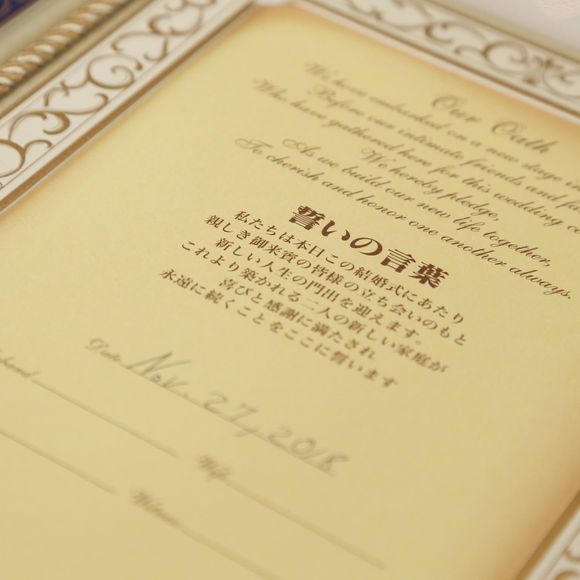 Our Oath
We have embarked on a new stage in
Before our intimate friends and
Who have gathered here for this wedding
We hereby pledge,
As we build our new life together,
To cherish and honor one another always.
誓いの言葉
私たちは本日この結婚式にあたり
親しき御来賓の皆様の立ち会いのもと
新しい人生の門出を迎えます。
これより築かれる二人の新しい家庭が
喜びと感謝に満たされ
永遠に続くことをここに誓います
Date Nov. 27, 2018
Wife
Witness